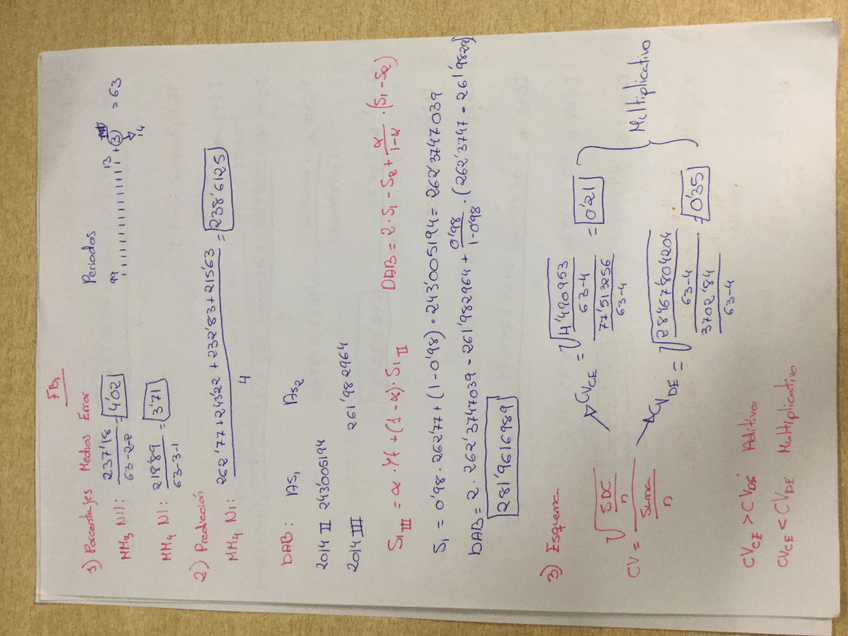 FB1
1) Porcentajes Medios Error
Periodos
99 13 +3 = 63
14
MM3 N11: 237'18 / 63-2-2 = 4'02
MM4 N1: 218'89 / 63-3-1 = 3'71
2) Predicción
MM4 N1: 262'77+243'22+232'83+215'63 / 4 = 238'6125
DAB: AS1 AS2
2014 II 243'005194
2014 III 261'982964
S1 III = α · Yt + (1-α) · S1 II
DAB = 2 · S1 - S2 + α/1-α · (S1 - S2)
S1 = 0'98 · 262'77 + (1-0'98) · 243'005194 = 262'3747039
DAB = 2 · 262'3747039 - 261'982964 + 0'98/1-0'98 · (262'3747 - 261'9829)
281'9616989
3) Esquema
CV = √(SDC/n) / Suma/n
CV CE = √(4'490953/63-4) / 77'513256/63-4 = 0'21
CV DE = √(28467'804204/63-4) / 3702'84/63-4 = 0'35
Multiplicativo
CV CE > CV DE Aditivo
CV CE < CV DE Multiplicativo